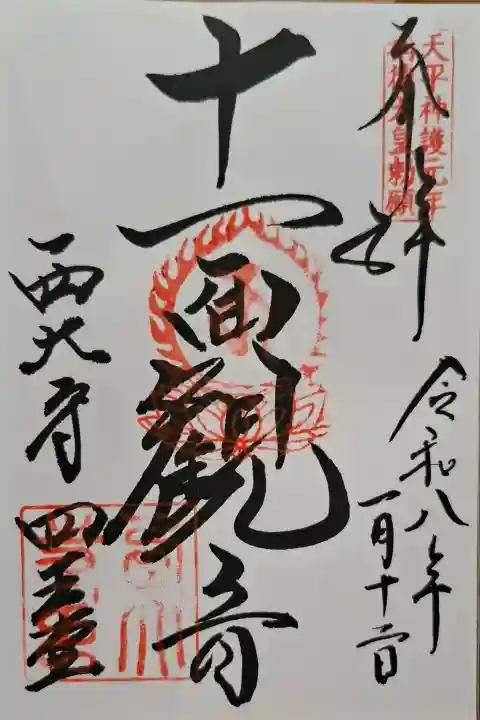 奉拝
天平神護元年
称徳天皇勅願
令和八年
一月十二日
十一面觀音
西大寺
四王堂